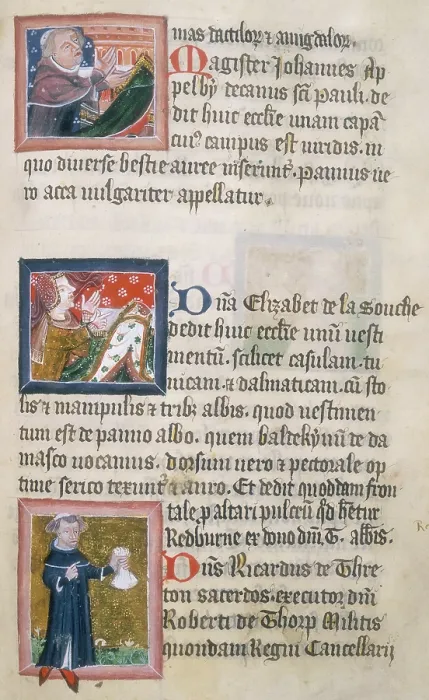 mas dactilor̄ & amigdalor̄.
Magister Johannes Ap
pelby decanus sc̄i Pauli. de
dit huic eccl̄ie unam capā
cuiꝰ campus est viridis. in
quo diverse bestie auree inserunt̄. Pannus ve
ro acca vulgariter appellatur.
Dn̄a Elizabet de la Souche
dedit huic eccl̄ie unū vesti
mentū. scilicet casulam. tu
nicam. & dalmaticam. cū sto
lis & manipulis & tribꝫ albis. quod vestimen
tum est de panno albo. quem baldekynū de da
masco vocamus. dorsum vero & pectorale op
time serico texunt̄ & auro. Et dedit quoddam fron
tale ꝑ altari pulcrū qd̄ het̄ur
Redburne ex dono dn̄i. T. abb̄is.
Dn̄s Ricardus de Thre
ton sacerdos. executor dn̄i
Roberti de Thorp Militis
quondam Regni Cancellarij